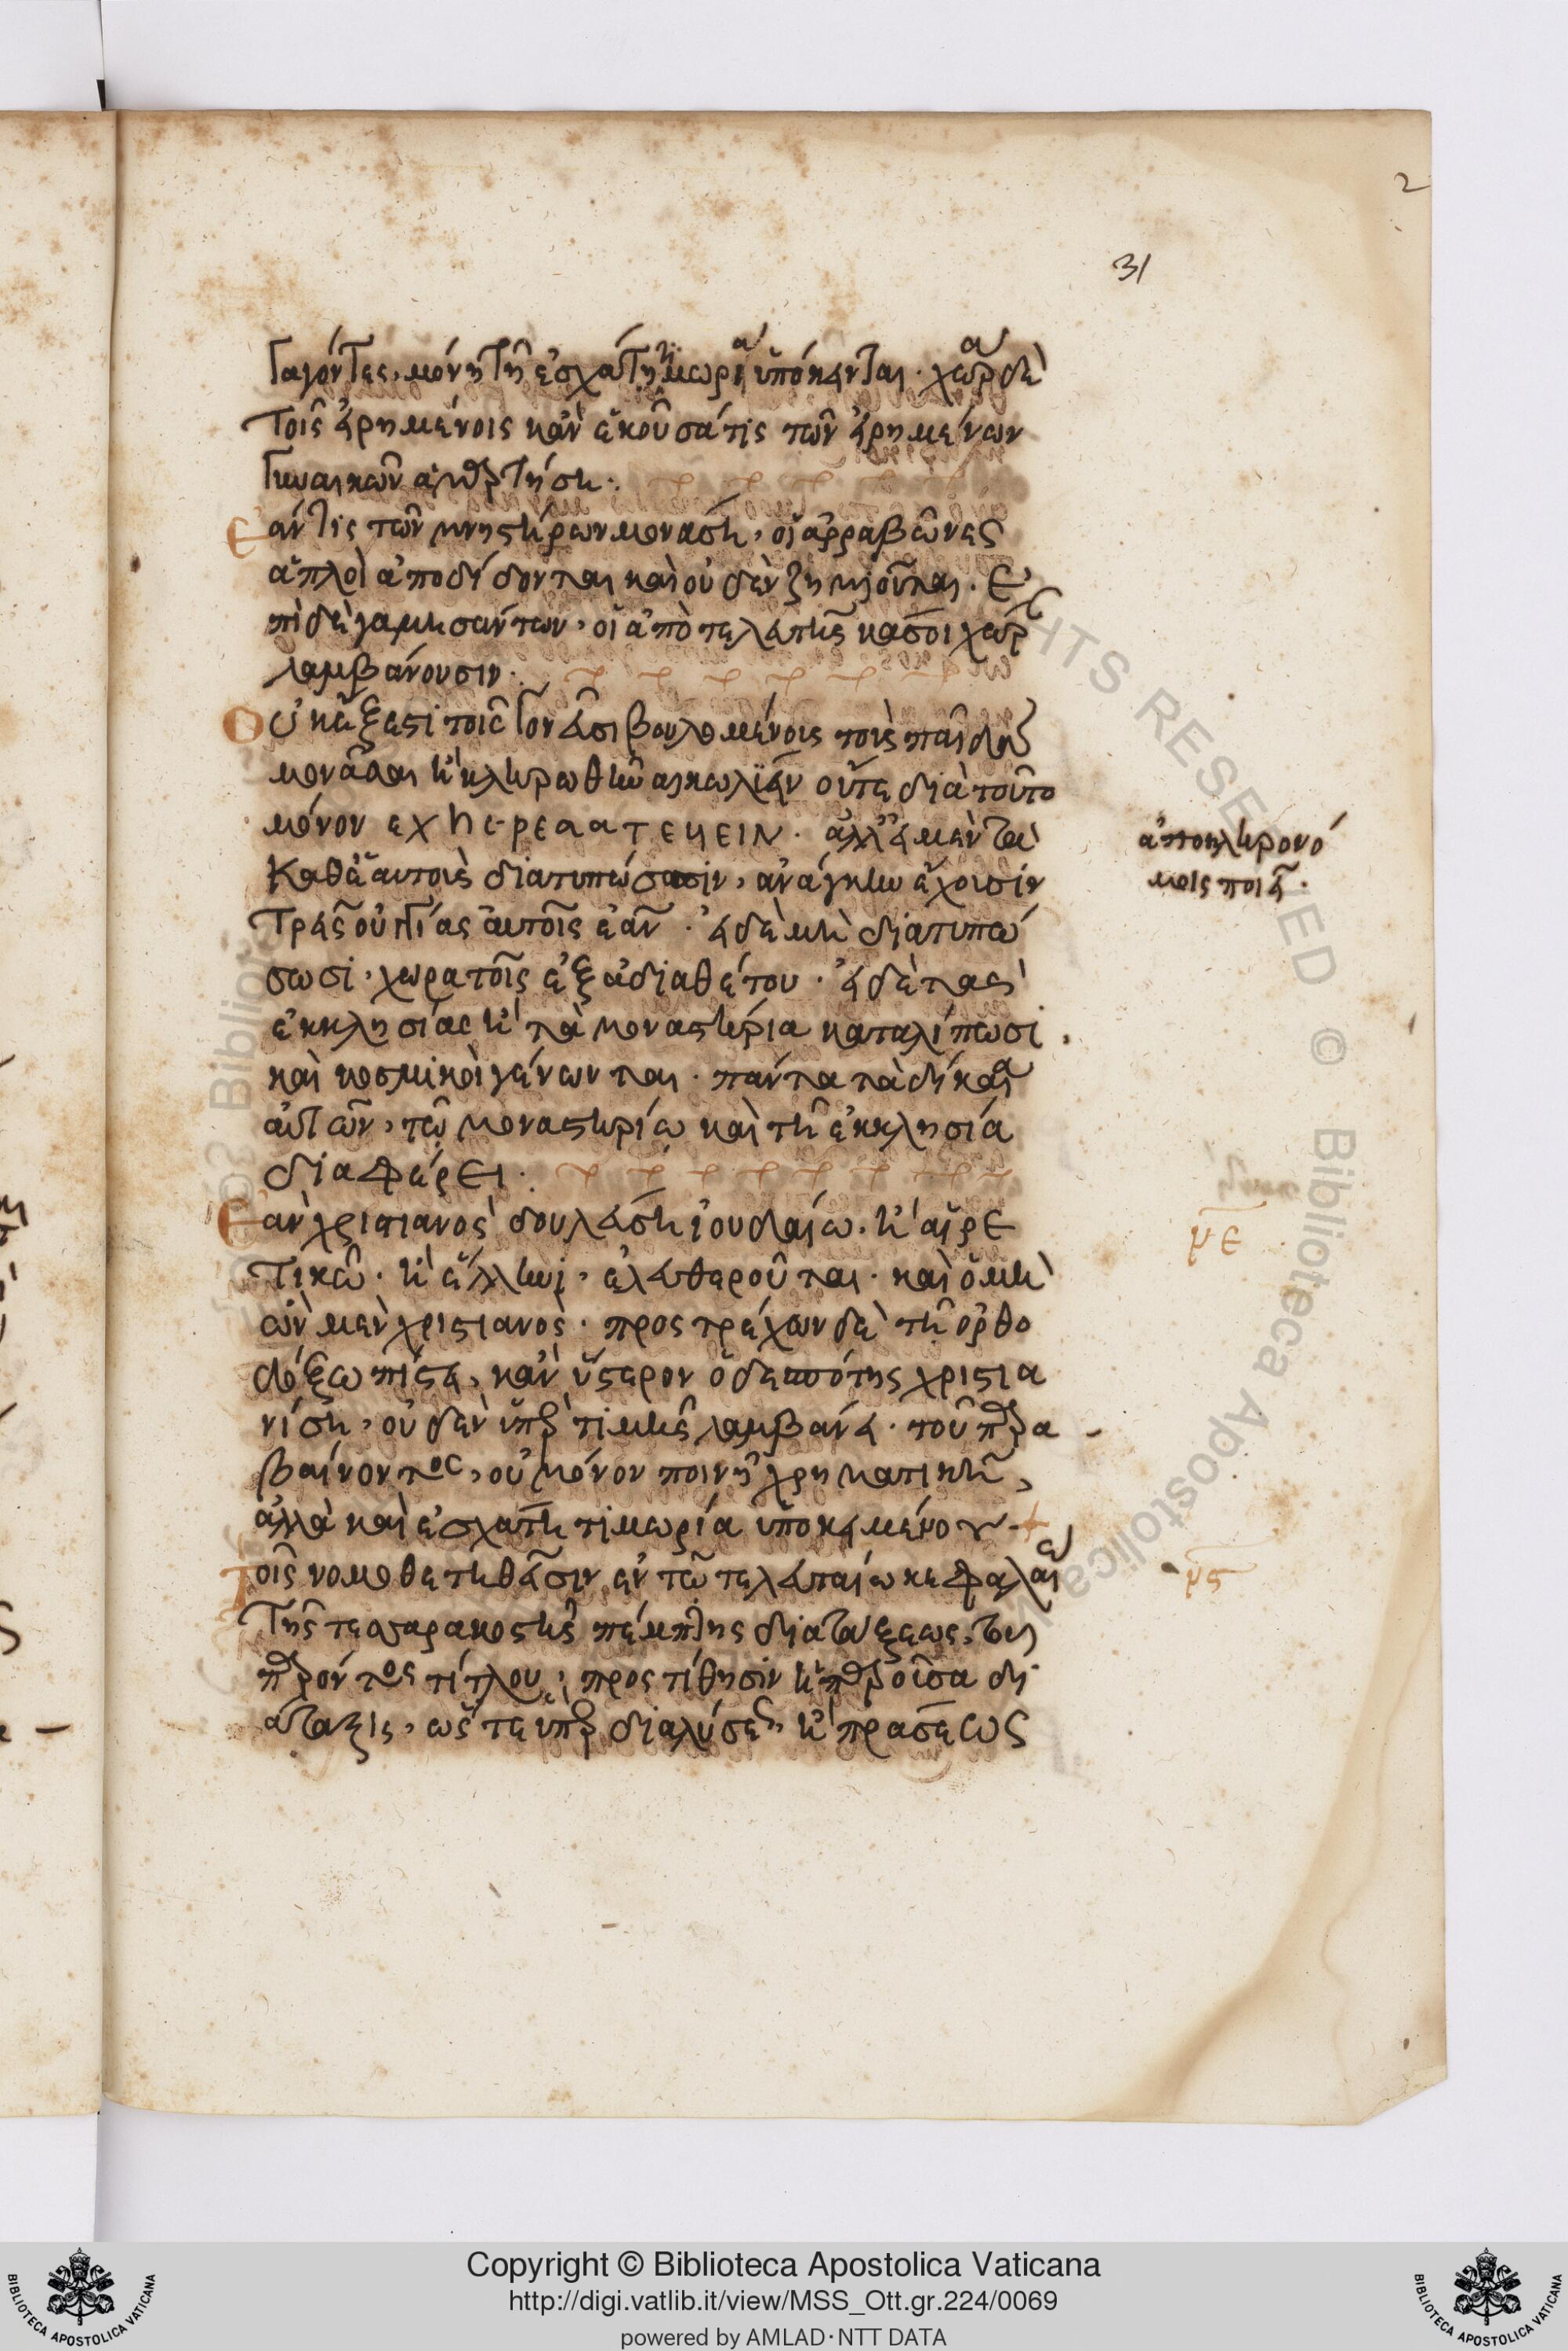 2
31
γαγόντες, μόνη τῆ ἐσχάτη τιμωρία ὑπόκεινται. χώρα δὲ
τοῖς εἰρημένοις κἂν ἑκοῦσά τις τῶν εἰρημένων
γυναικῶν ἁμαρτήση.
Ἐάν τις τῶν μνηστήρων μονάση, οἱ ἀρραβῶνες
ἁπλοῖ ἀποδίδονται καὶ οὐδὲν ζημιοῦται. ἐ
πὶ δὲ γαμησάντων, οἱ ἀπὸ τελευτῆς κάσοι χώραν
λαμβάνουσιν.
Οὐκ ἔξεστι τοῖς γονεῦσι βουλομένοις τοὺς παῖδας
μονάσαι ἢ κληρωθῆναι κωλύειν οὔτε διὰ τοῦτο
μόνον εχhερεδατευειν. ἀλλ' εἰ μὲν τὰ
καθ' ἑαυτοὺς διατυπώσωσιν, ἀνάγκην ἔχουσιν
τρεῖς οὐγγίας αὐτοῖς ἐᾶν. εἰ δὲ μὴ διατυπώ
σωσι, χώρα τοῖς ἐξ ἀδιαθέτου. εἰ δὲ τὰς
ἐκκλησίας ἢ τὰ μοναστήρια καταλίπωσι,
καὶ κοσμικοὶ γένωνται. πάντα τὰ δίκαια
αὐτῶν, τῷ μοναστηρίω καὶ τῆ ἐκκλησία
διαφέρει.
ἀποκληρονό
μοις ποιεῖν.
Ἐὰν χριστιανὸς δουλεύση ἰουδαίω. ἢ αἱρε
τικῶ. ἢ ἕλληνι, ἐλευθεροῦται. καὶ ὁ μὴ
ὢν μὲν χριστιανὸς. προστρέχων δὲ τῆ ὀρθο
δόξω πίστει, κἂν ὕστερον ὁ δεσπότης χριστια
νίση, οὐδὲν ὑπὲρ τιμῆς λαμβάνει. τοῦ παρα
βαίνοντος, οὐ μόνον ποινῆ χρηματικῆ,
ἀλλὰ καὶ ἐσχάτη τιμωρία ὑποκειμένου.
με
Τοῖς νομοθετηθεῖσιν ἐν τῶ τελευταίω κεφαλαίω
τῆς τεσσαρακοστῆς πέμπτης διατάξεως, τοῦ
παρόντος τίτλου, προστίθησιν ἡ παροῦσα δι
άταξις, ὥστε ὑπὲρ διαλύσεως, ἢ πράσεως
μς
Copyright © Biblioteca Apostolica Vaticana
http://digi.vatlib.it/view/MSS_Ott.gr.224/0069
powered by AMLAD·NTT DATA
BIBLIOTECA APOSTOLICA VATICANA
BIBLIOTECA APOSTOLICA VATICANA